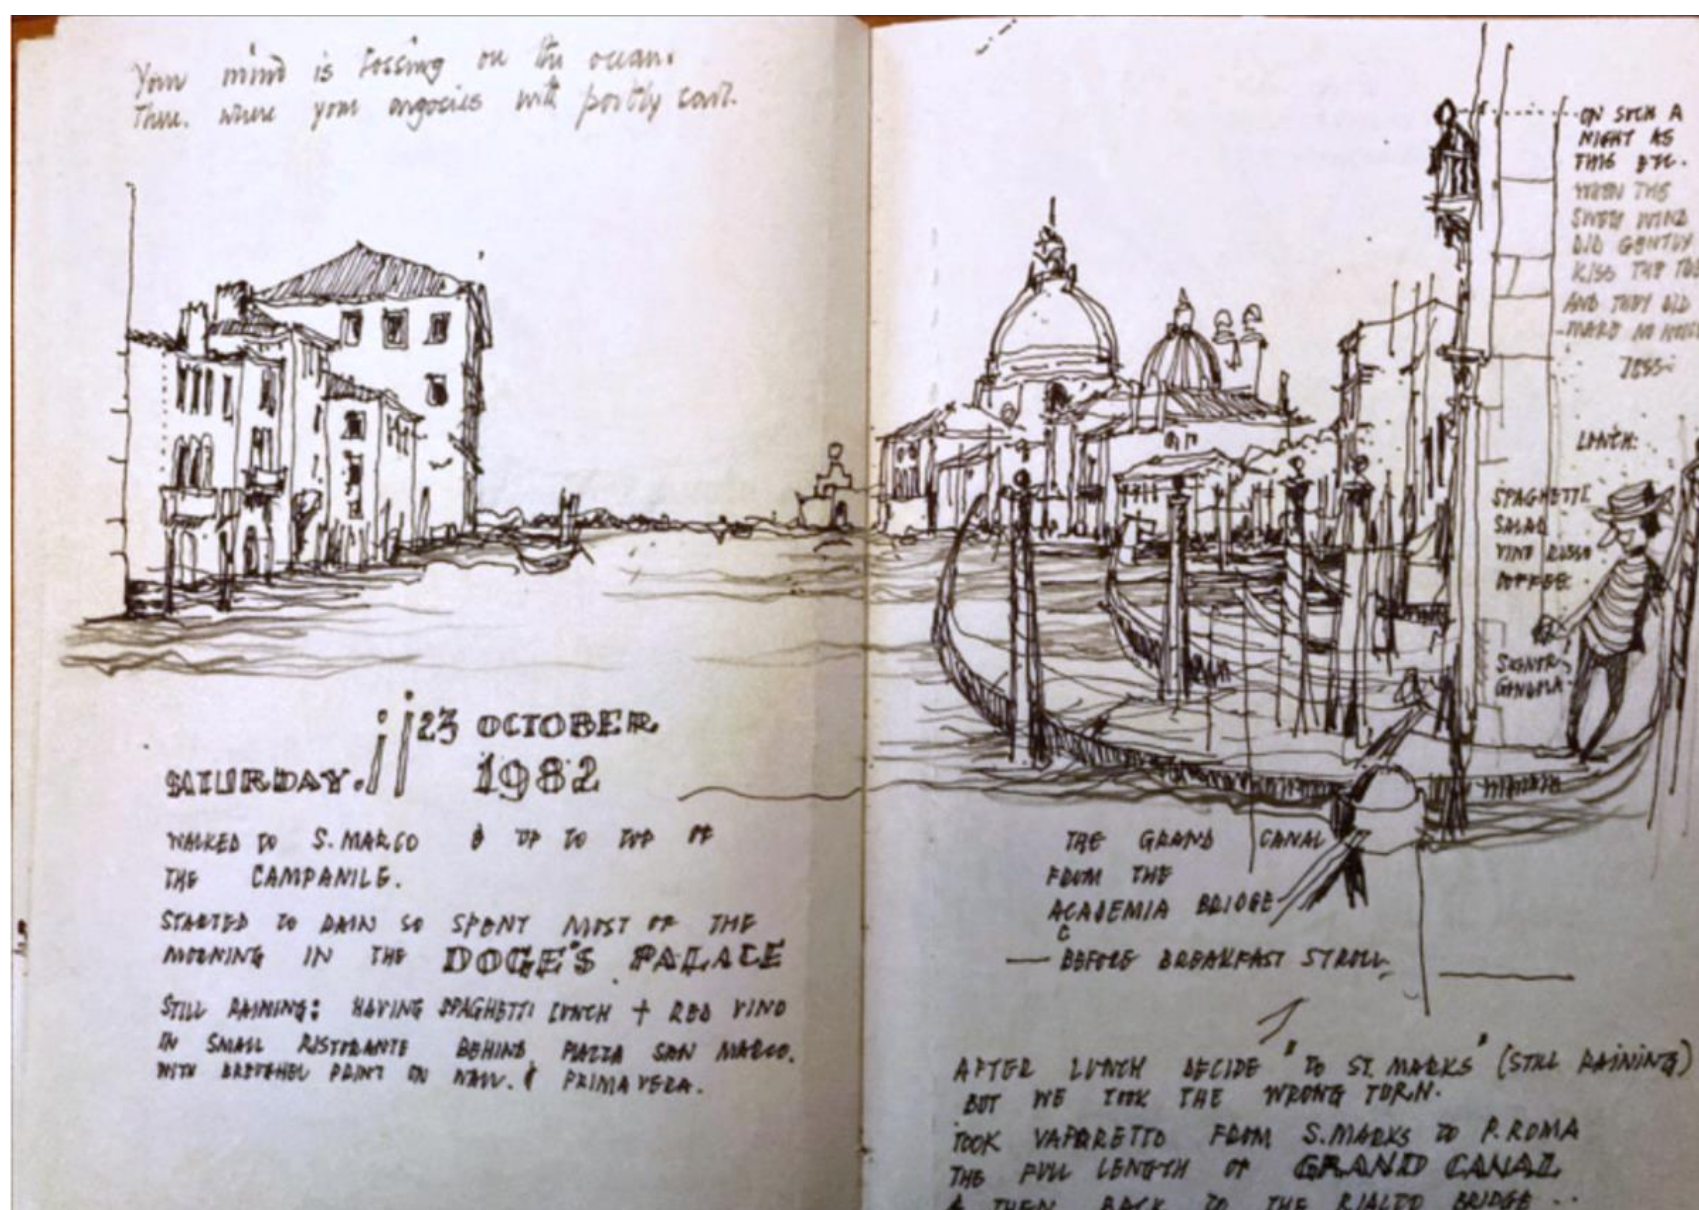 Your mind is tossing on the ocean.
There. where your argosies with portly sail.
SATURDAY. 23 OCTOBER
1982
WALKED TO S. MARCO & UP TO TOP OF
THE CAMPANILE.
STARTED TO RAIN SO SPENT MOST OF THE
MORNING IN THE DOGE'S PALACE
STILL RAINING: HAVING SPAGHETTI LUNCH + RED VINO
IN SMALL RISTORANTE BEHIND PIAZZA SAN MARCO.
WITH BREUGHEL PRINT ON WALL. & PRIMAVERA.
ON SUCH A
NIGHT AS
THIS ETC.
WHEN THE
SWEET WIND
DID GENTLY
KISS THE
AND THEY DID
LUNCH:
SPAGHETTI
SALAD
VINO ROSSO
COFFEE
THE GRAND CANAL
FROM THE
ACADEMIA BRIDGE
C
— BEFORE BREAKFAST STROLL
AFTER LUNCH DECIDE "TO ST. MARKS" (STILL RAINING)
BUT WE TOOK THE WRONG TURN.
TOOK VAPARETTO FROM S. MARKS TO P. ROMA
THE FULL LENGTH OF GRAND CANAL
& THEN BACK TO THE RIALTO BRIDGE --